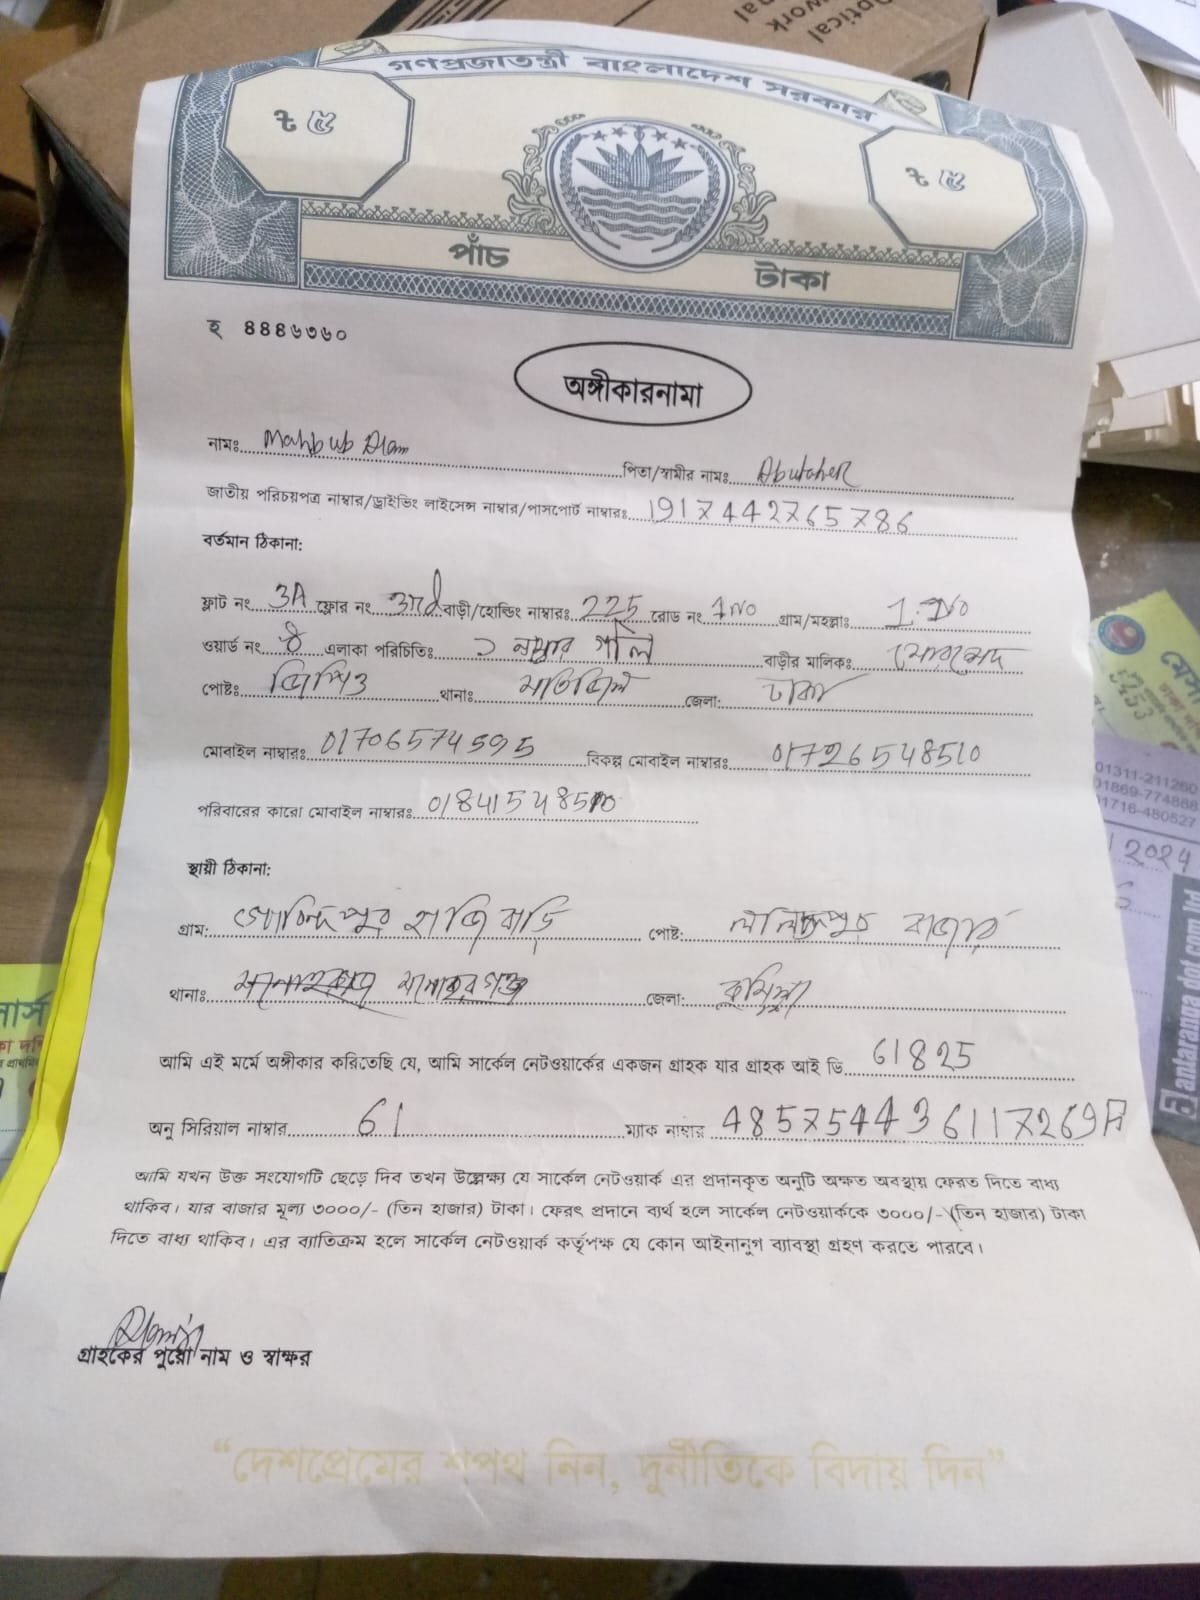 গণপ্রজাতন্ত্রী বাংলাদেশ সরকার
৳ ৫ ৳ ৫
পাঁচ টাকা
হ ৪৪৪৬৩৬০
অঙ্গীকারনামা
নামঃ Mahbub Alam পিতা/স্বামীর নামঃ Abutaher
জাতীয় পরিচয়পত্র নাম্বার/ড্রাইভিং লাইসেন্স নাম্বার/পাসপোর্ট নাম্বারঃ 1917442765786
বর্তমান ঠিকানা:
ফ্লাট নং 3A ফ্লোর নং 3rd বাড়ী/হোল্ডিং নাম্বারঃ 225 রোড নং 1 No গ্রাম/মহল্লাঃ 1. No
ওয়ার্ড নং 8 এলাকা পরিচিতিঃ ১ নম্বার গলি বাড়ীর মালিকঃ
পোষ্টঃ জিপিও থানাঃ মতিঝিল জেলা: ঢাকা
মোবাইল নাম্বারঃ 01706574595 বিকল্প মোবাইল নাম্বারঃ 01726548510
পরিবারের কারো মোবাইল নাম্বারঃ 01841548510
স্থায়ী ঠিকানা:
গ্রাম: গোবিন্দপুর হাজি বাড়ি পোষ্ট: বাজার
থানাঃ মনোহরগঞ্জ জেলা: কুমিল্লা
আমি এই মর্মে অঙ্গীকার করিতেছি যে, আমি সার্কেল নেটওয়ার্কের একজন গ্রাহক যার গ্রাহক আই ডি 61825
অনু সিরিয়াল নাম্বার 61 ম্যাক নাম্বার 485754436117269A
আমি যখন উক্ত সংযোগটি ছেড়ে দিব তখন উল্লেক্ষ্য যে সার্কেল নেটওয়ার্ক এর প্রদানকৃত অনুটি অক্ষত অবস্থায় ফেরত দিতে বাধ্য
থাকিব। যার বাজার মূল্য ৩০০০/- (তিন হাজার) টাকা। ফেরৎ প্রদানে ব্যর্থ হলে সার্কেল নেটওয়ার্ককে ৩০০০/- (তিন হাজার) টাকা
দিতে বাধ্য থাকিব। এর ব্যাতিক্রম হলে সার্কেল নেটওয়ার্ক কর্তৃপক্ষ যে কোন আইনানুগ ব্যাবস্থা গ্রহণ করতে পারবে।
গ্রাহকের পুরো নাম ও স্বাক্ষর
“দেশপ্রেমের শপথ নিন, দুর্নীতিকে বিদায় দিন”
01311-211260
01869-774888
01716-480527
2024
antaranga dot com ltd